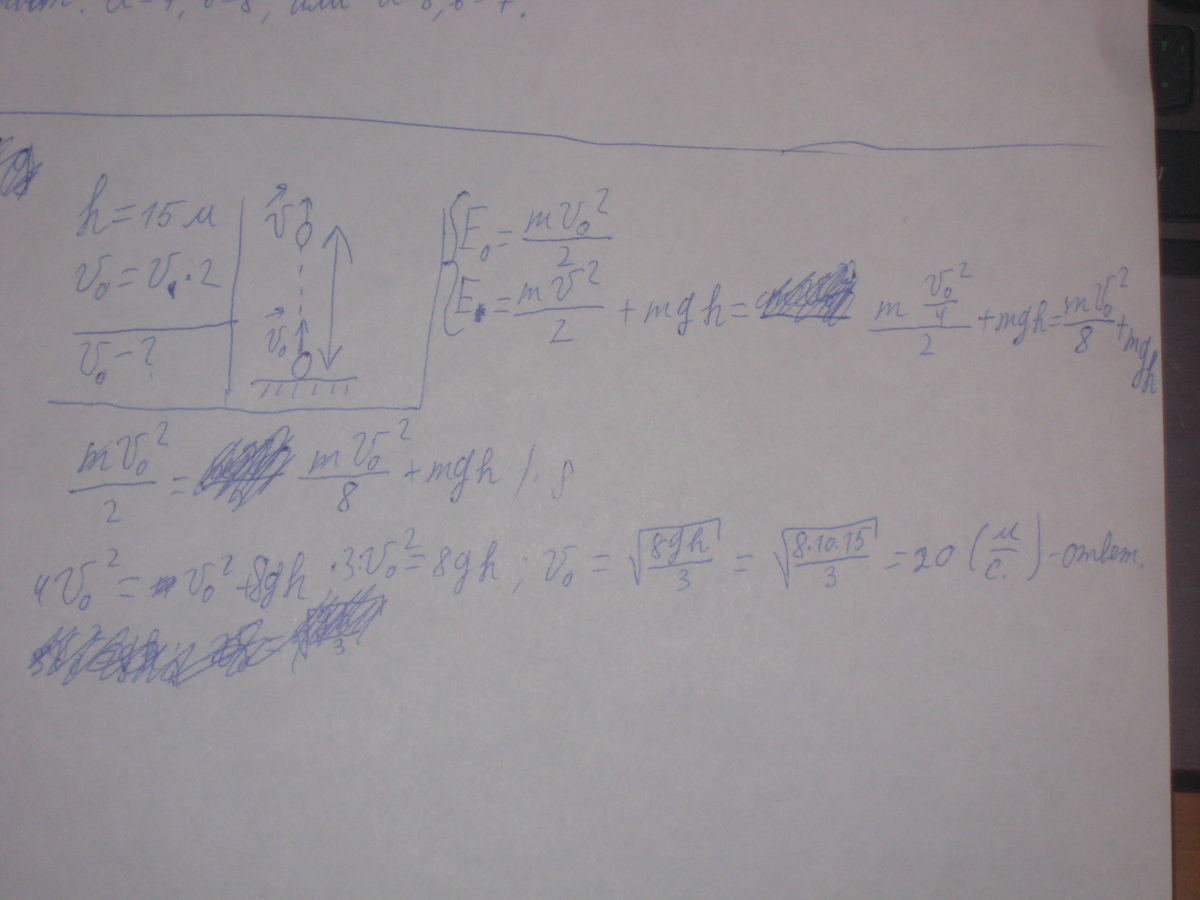 или
h = 15 м
v₀ = v · 2
v₀ - ?
v⃗
v⃗₀
E₀ = mv₀²/2
E = mv²/2 + mgh = m (v₀²/4)/2 + mgh = mv₀²/8 + mgh
mv₀²/2 = mv₀²/8 + mgh / · 8
4v₀² = v₀² + 8gh · 3v₀² = 8gh ; v₀ = √(8gh/3) = √(8·10·15/3) = 20 (м/с.) - ответ.